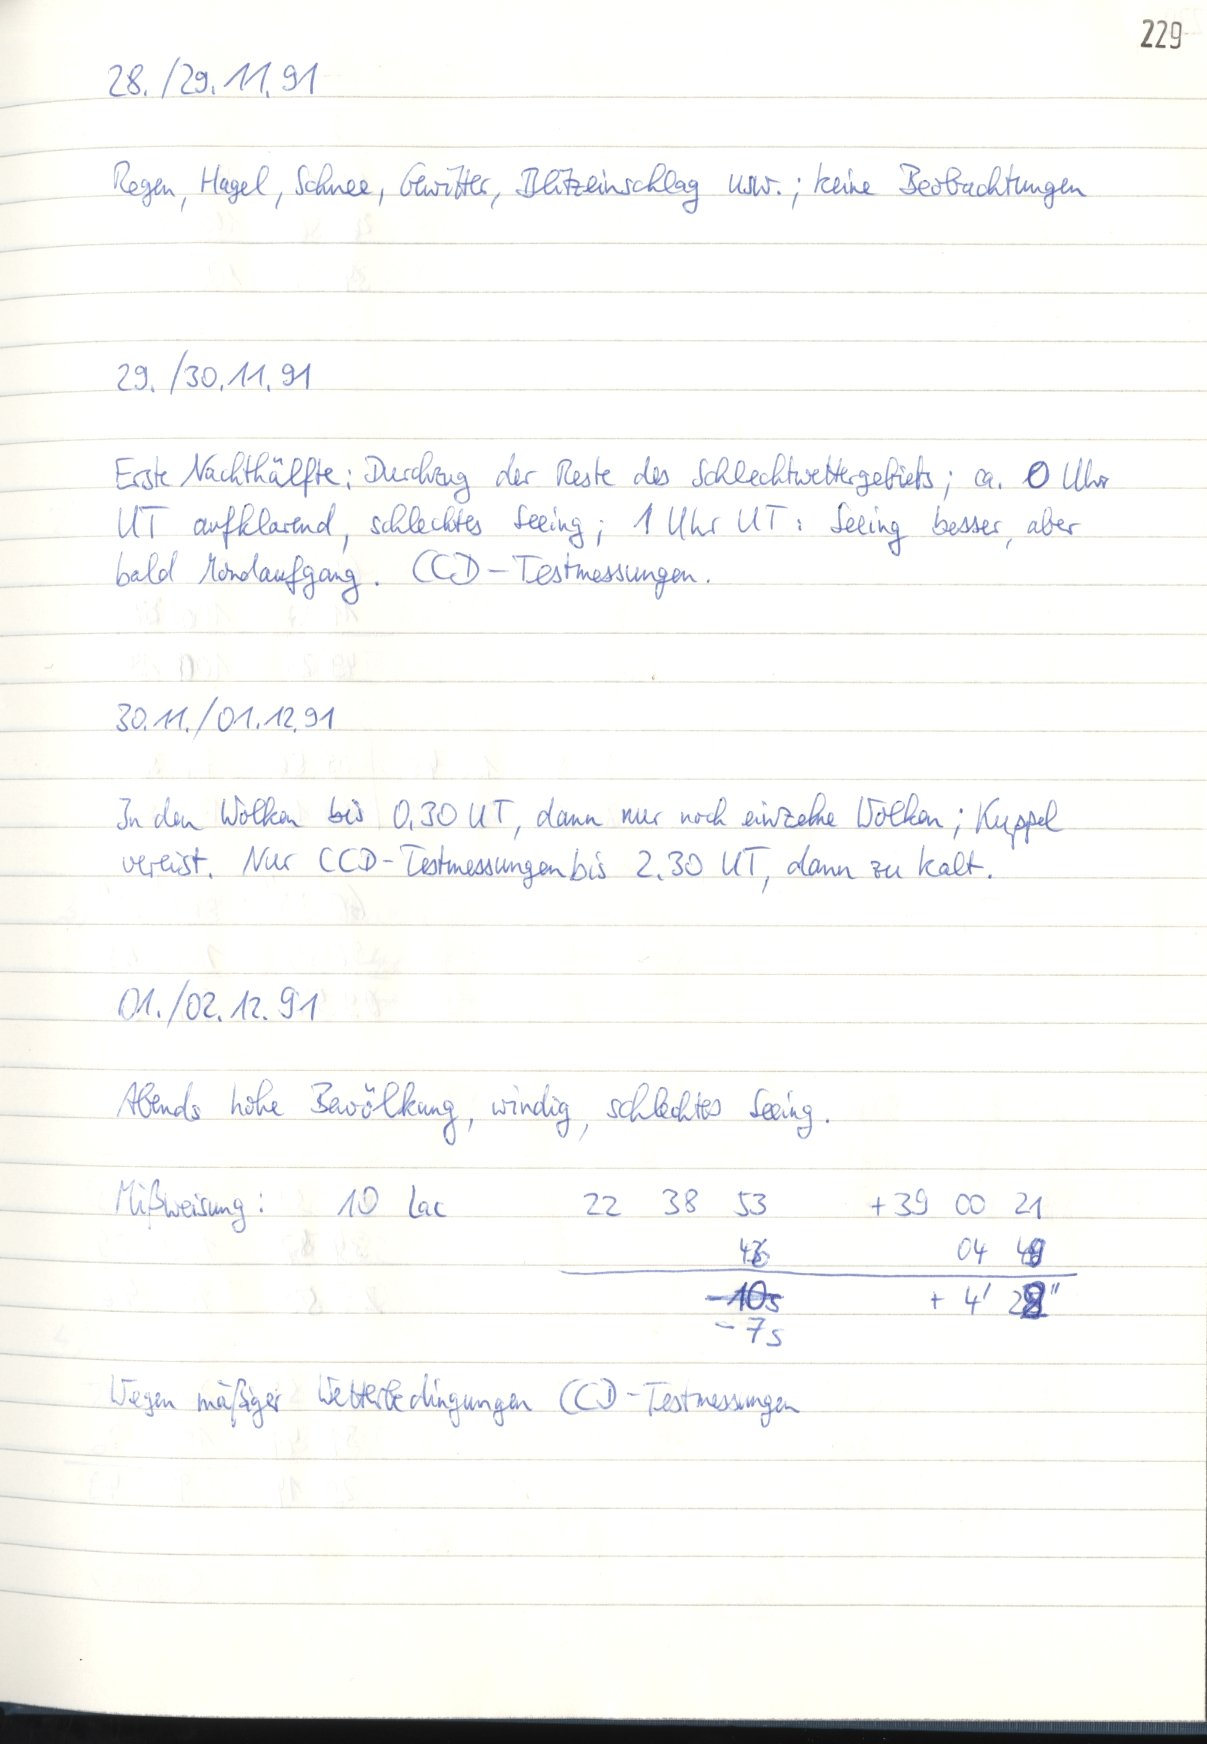 229
28./29.11.91
Regen, Hagel, Schnee, Gewitter, Blitzeinschlag usw.; keine Beobachtungen
29./30.11.91
Erste Nachthälfte: Durchzug der Reste des Schlechtwettergebiets; ca. 0 Uhr
UT aufklarend, schlechtes Seeing; 1 Uhr UT: Seeing besser, aber
bald Mondaufgang. CCD-Testmessungen.
30.11./01.12.91
In den Wolken bis 0.30 UT, dann nur noch einzelne Wolken; Kuppel
vereist. Nur CCD-Testmessungen bis 2.30 UT, dann zu kalt.
01./02.12.91
Abends hohe Bewölkung, windig, schlechtes Seeing.
Mißweisung: 10 Lac 22 38 53 +39 00 21
04
-10s + 4'
-7s
Wegen mäßiger Wetterbedingungen CCD-Testmessungen